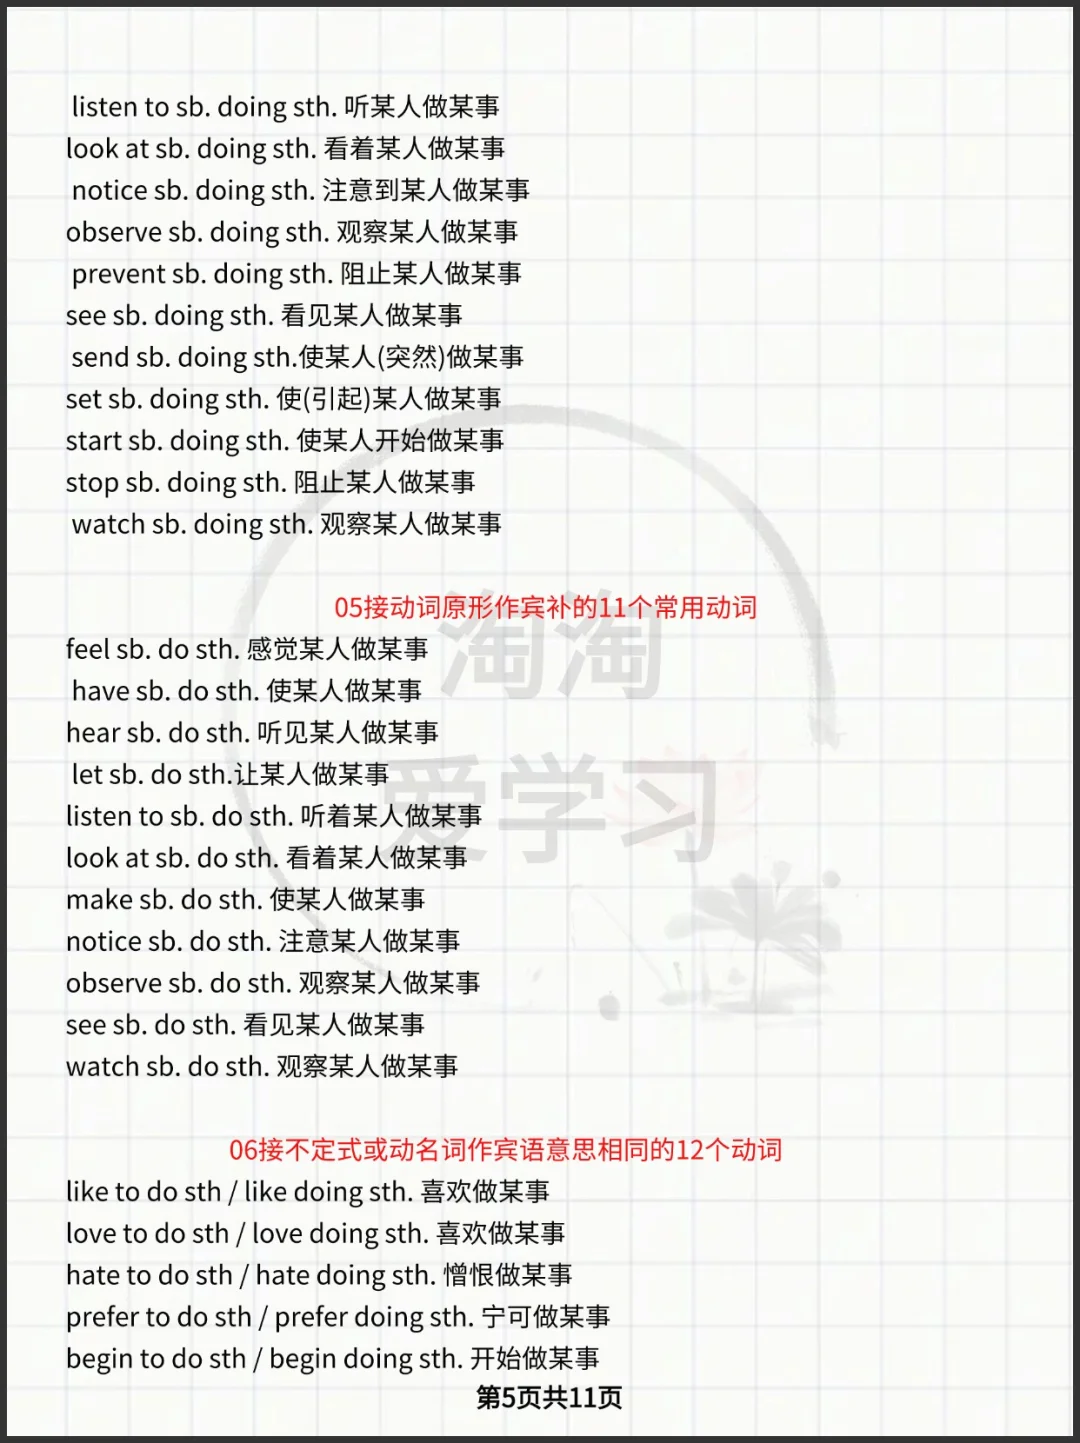 listen to sb. doing sth. 听某人做某事
look at sb. doing sth. 看着某人做某事
notice sb. doing sth. 注意到某人做某事
observe sb. doing sth. 观察某人做某事
prevent sb. doing sth. 阻止某人做某事
see sb. doing sth. 看见某人做某事
send sb. doing sth.使某人(突然)做某事
set sb. doing sth. 使(引起)某人做某事
start sb. doing sth. 使某人开始做某事
stop sb. doing sth. 阻止某人做某事
watch sb. doing sth. 观察某人做某事
05接动词原形作宾补的11个常用动词
feel sb. do sth. 感觉某人做某事
have sb. do sth. 使某人做某事
hear sb. do sth. 听见某人做某事
let sb. do sth.让某人做某事
listen to sb. do sth. 听着某人做某事
look at sb. do sth. 看着某人做某事
make sb. do sth. 使某人做某事
notice sb. do sth. 注意某人做某事
observe sb. do sth. 观察某人做某事
see sb. do sth. 看见某人做某事
watch sb. do sth. 观察某人做某事
06接不定式或动名词作宾语意思相同的12个动词
like to do sth / like doing sth. 喜欢做某事
love to do sth / love doing sth. 喜欢做某事
hate to do sth / hate doing sth. 憎恨做某事
prefer to do sth / prefer doing sth. 宁可做某事
begin to do sth / begin doing sth. 开始做某事
第5页共11页
淘淘
爱学习